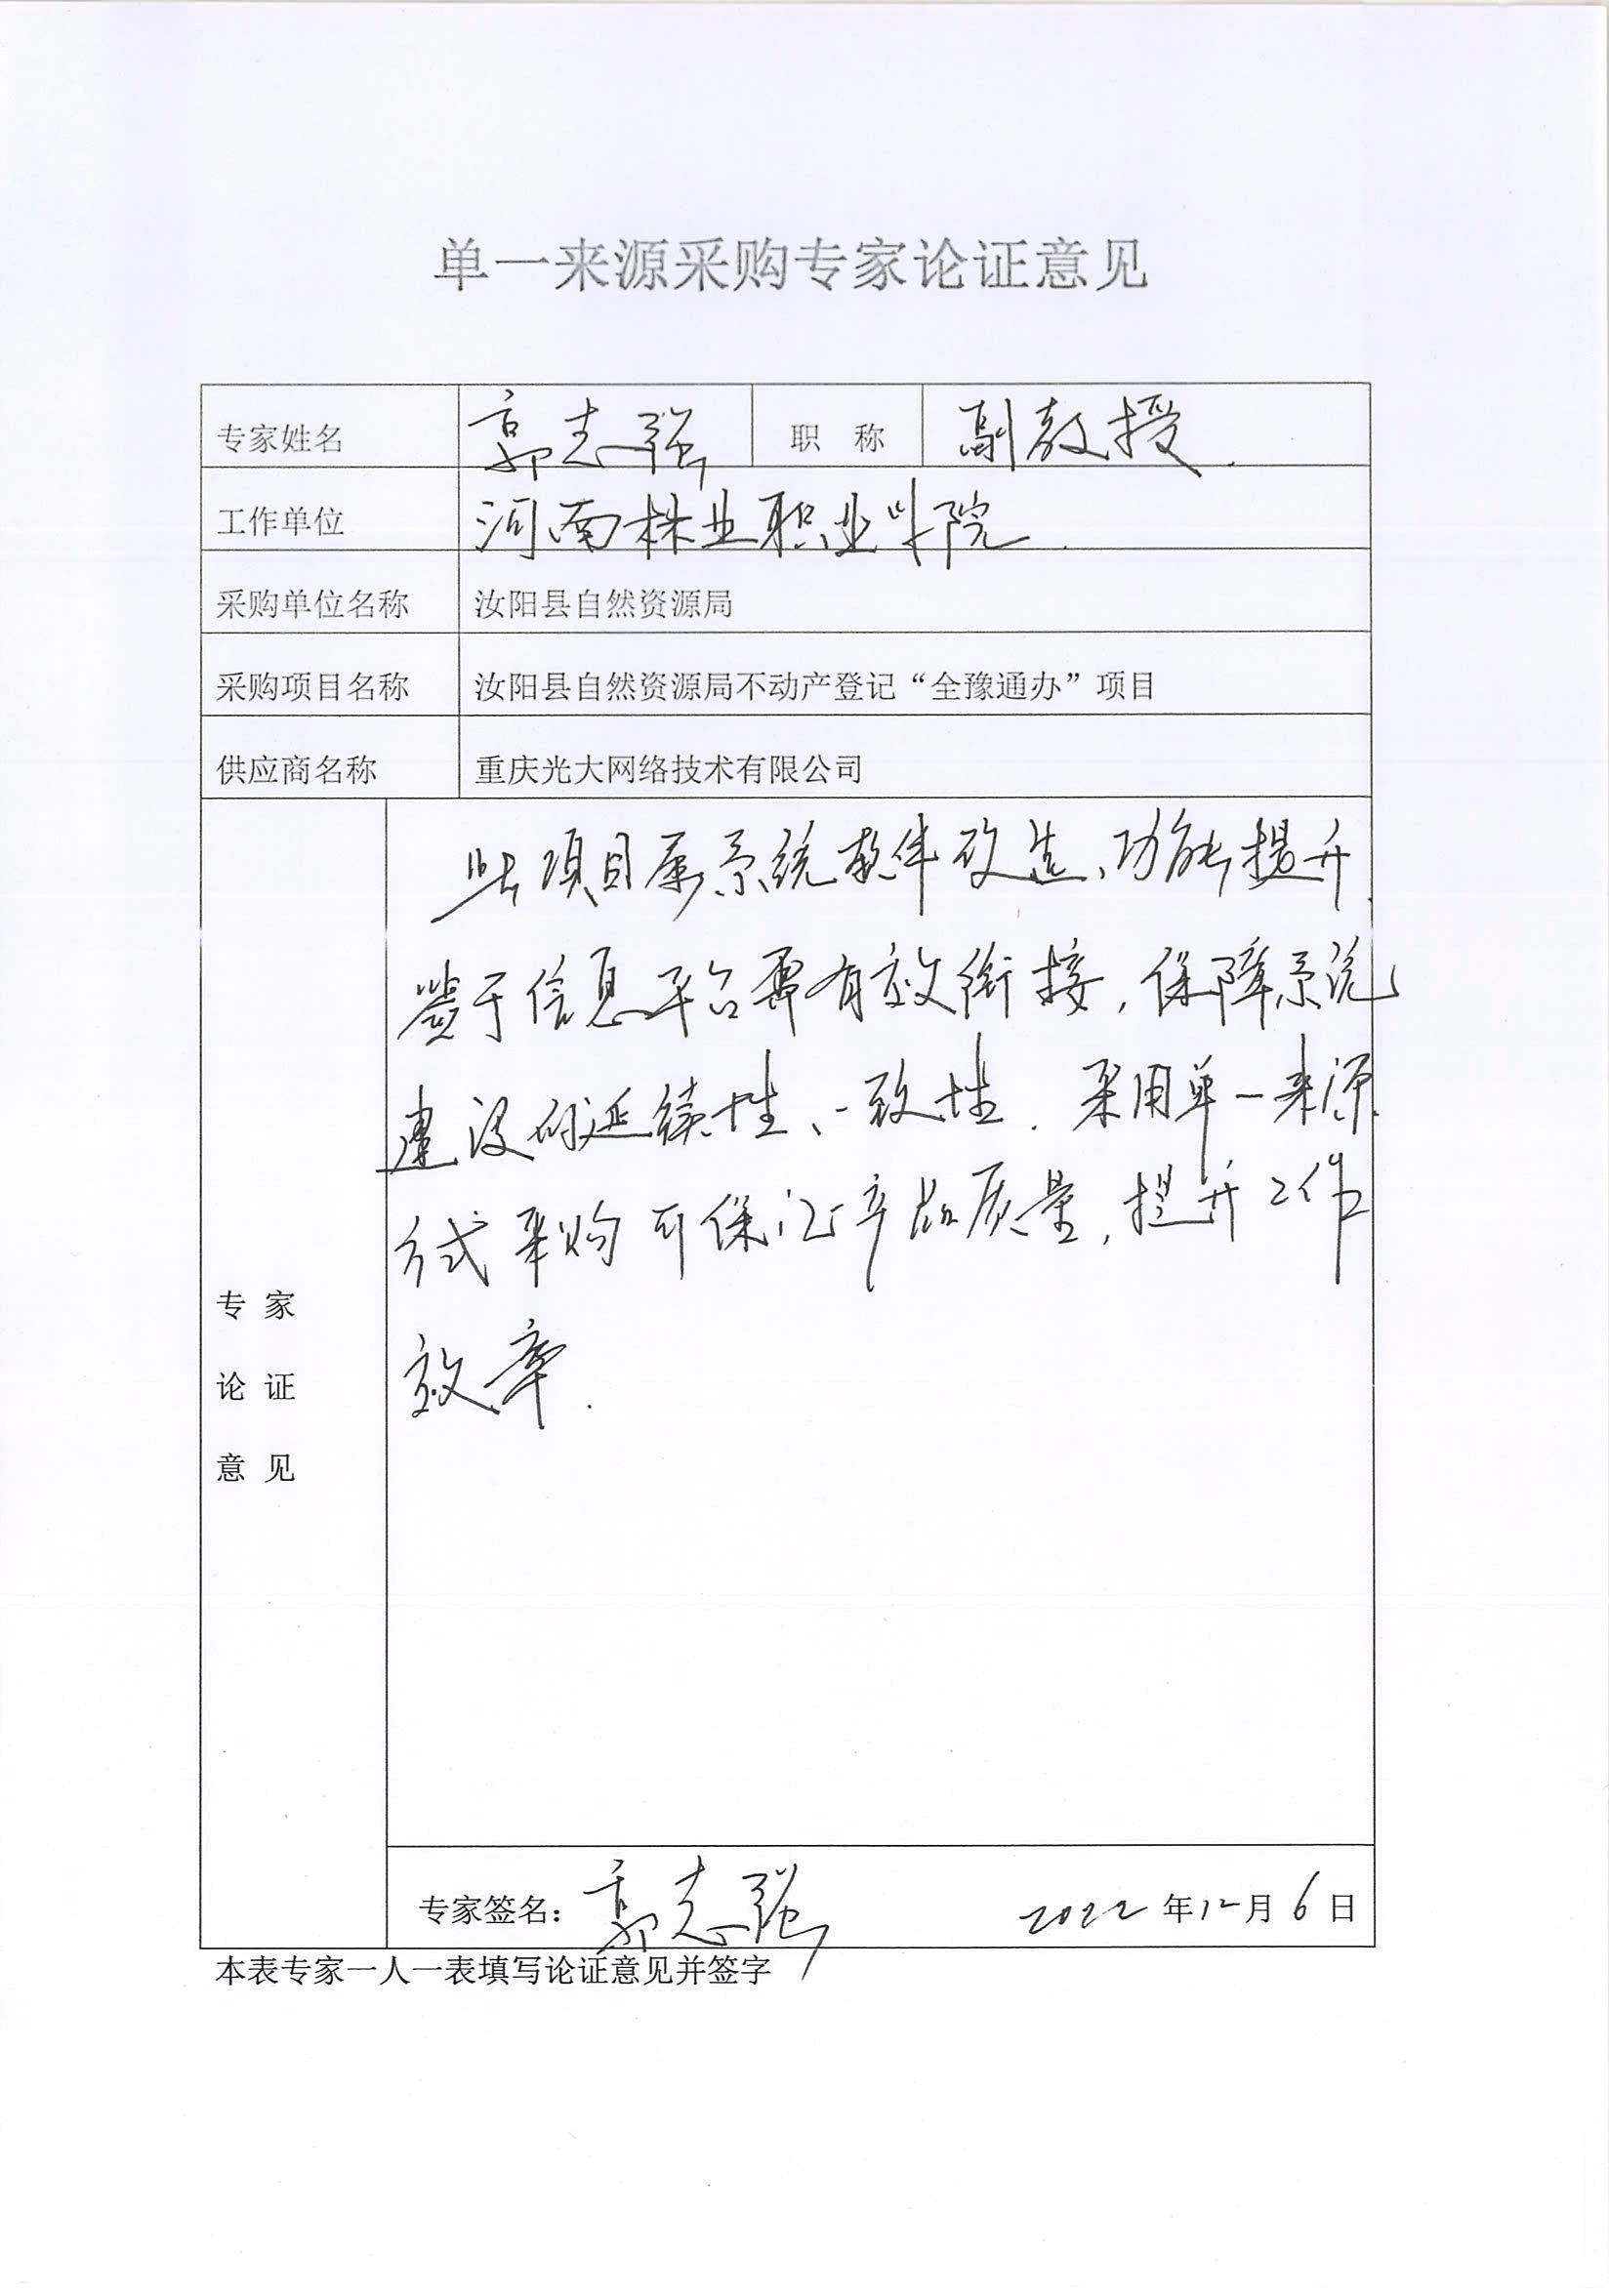 单一来源采购专家论证意见
专家姓名 郭志强 职 称 副教授.
工作单位 河南林业职业学院.
采购单位名称 汝阳县自然资源局
采购项目名称 汝阳县自然资源局不动产登记“全豫通办”项目
供应商名称 重庆光大网络技术有限公司
专 家
论 证
意 见
此项目属系统软件改造、功能提升.
鉴于信息平台需有效衔接,保障系统
建设的延续性、一致性.采用单一来源
方式采购可保证产品质量,提升工作
效率.
专家签名: 郭志强 2022年12月6日
本表专家一人一表填写论证意见并签字